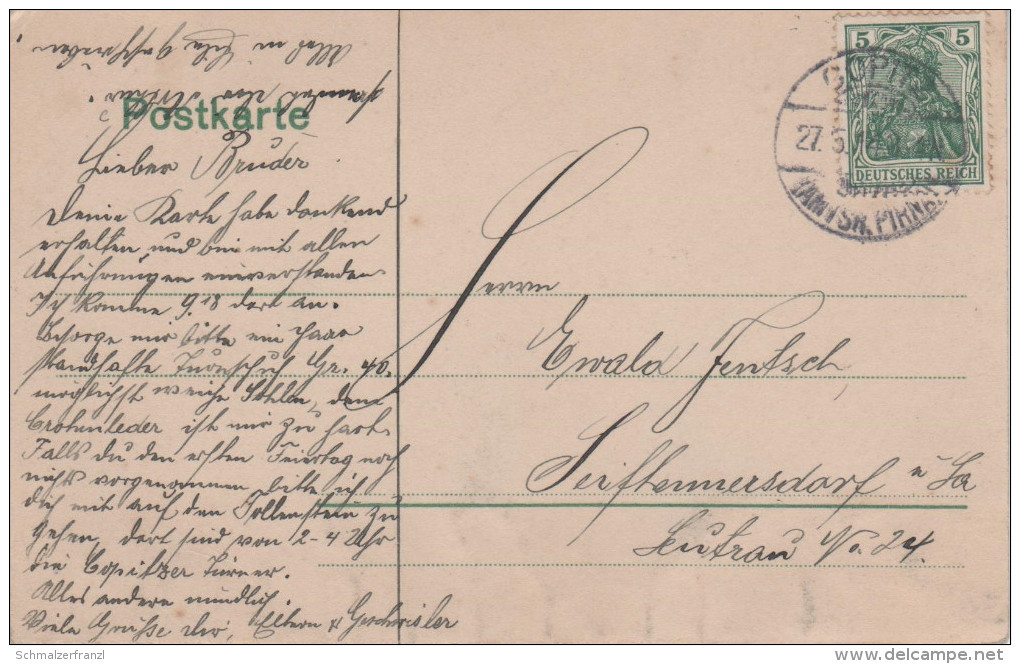 Postkarte
Lieber Bruder
Deine Karte habe dankend
erhalten und bin mit allen
Anführungen einverstanden
Ich komme 9.18 dort an.
Besorge mir bitte ein Paar
standhafte Turnschuh Gr. 40.
möglichst weiche Sohlen, denn
ist mir zu hart
Falls du den ersten Feiertag noch
nichts vorgenommen bitte ich
dich mit auf den Tollenstein zu
gehen, dort sind von 2-4 Uhr
die Copitzer Turner.
Alles andere mündlich.
Viele Grüße dir, Eltern & Geschwister
Alles in Eile geschrieben
5 5
DEUTSCHES REICH
COPITZ
27.5.
(AMTSH. PIRNA)
Herrn
Ewald Jentsch,
Seifhennersdorf i. Sa
Leutrau No. 24.
© Schmalzerfranzl